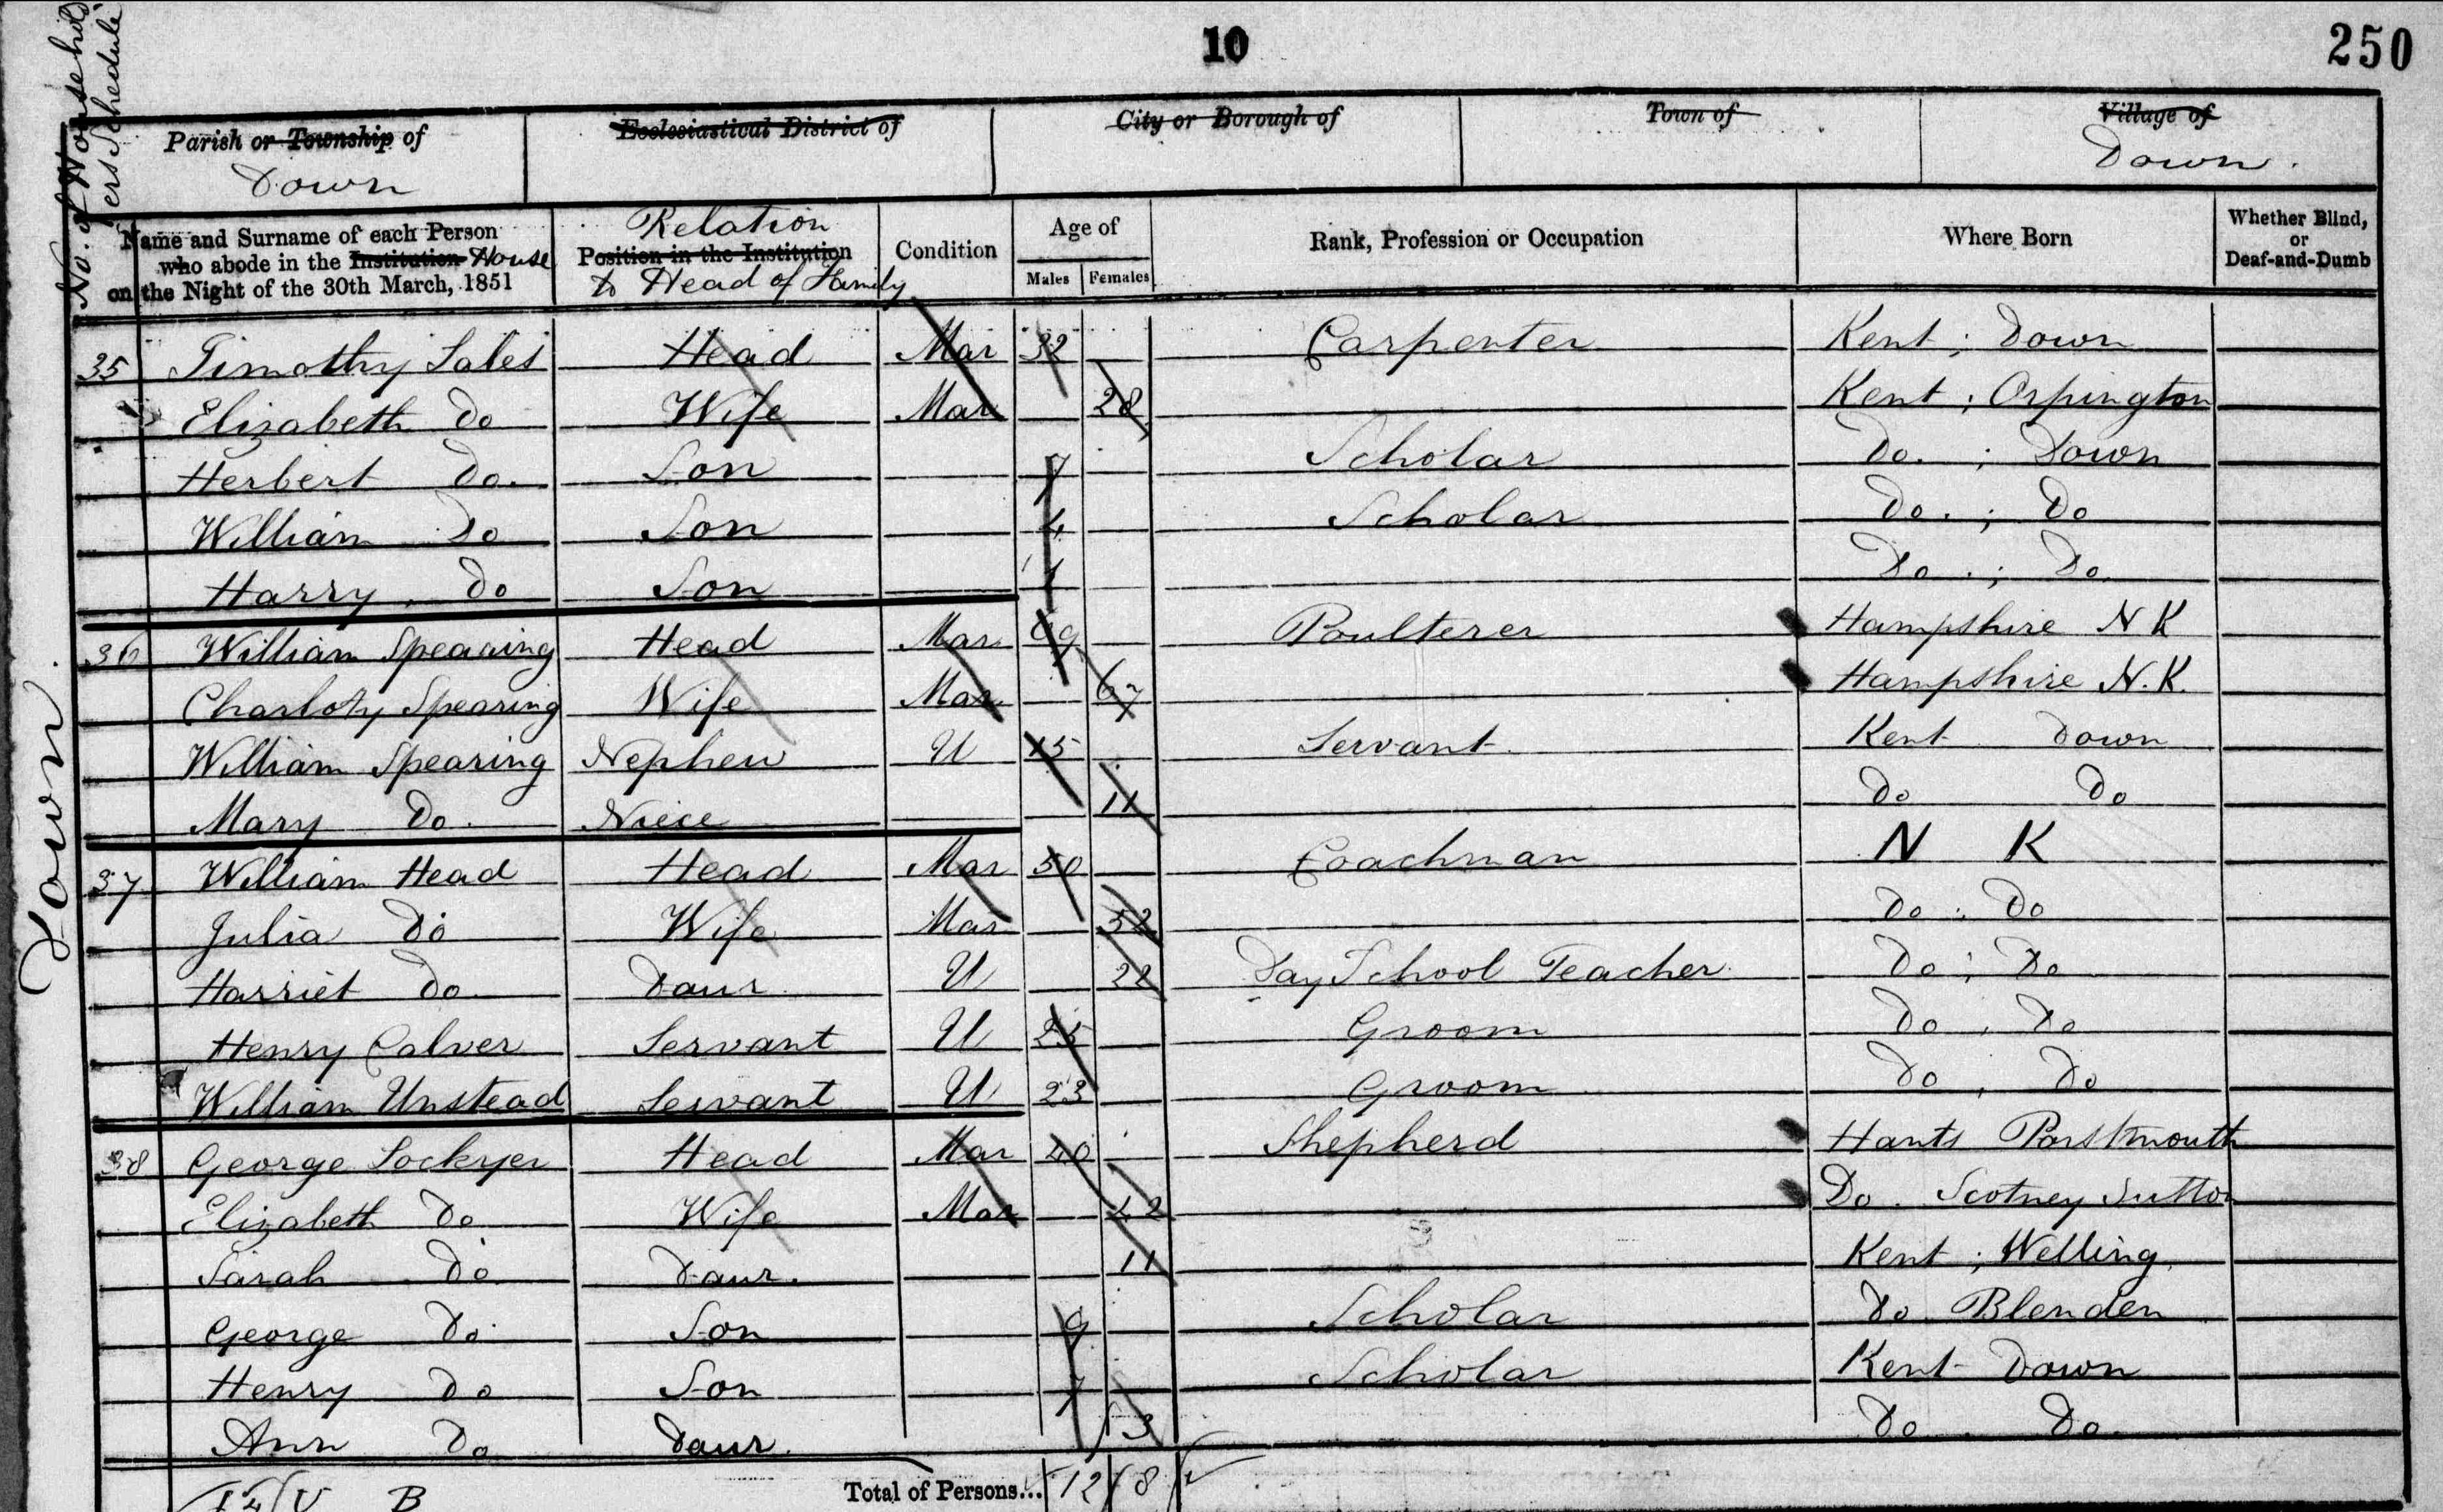 10
250
No. of Household pers Schedule
Parish or Township of Down
Ecclesiastical District of
City or Borough of
Town of
Village of Down.
Name and Surname of each Person who abode in the Institution House on the Night of the 30th March, 1851
Relation Position in the Institution to Head of Family
Condition
Age of
Males Females
Rank, Profession or Occupation
Where Born
Whether Blind, or Deaf-and-Dumb
Down.
35 Timothy Sales Head Mar 32 Carpenter Kent ; Down
Elizabeth Do Wife Mar 28 Kent ; Orpington
Herbert Do. Son 7 Scholar Do. ; Down
William Do Son 4 Scholar Do. ; Do
Harry. Do Son 1 Do. ; Do.
36 William Spearing Head Mar 69 Poulterer Hampshire N K
Charloty Spearing Wife Mar 67 Hampshire N.K.
William Spearing Nephew U 15 Servant Kent Down
Mary Do. Niece 11 Do Do
37 William Head Head Mar 50 Coachman N K
Julia Do Wife Mar 52 Do ; Do
Harriet Do. Daur. U 22 Day School Teacher Do ; Do
Henry Calver Servant U 25 Groom Do ; Do
William Unstead Servant U 23 Groom Do ; Do
38 George Lockyer Head Mar 40 Shepherd Hants Porstmouth
Elizabeth Do Wife Mar 42 Do. Scotney Sutton
Sarah Do Daur. 11 Kent ; Welling
George Do Son 9 Scholar Do Blenden
Henry Do Son 7 Scholar Kent Down
Ann Do Daur. 3 Do. Do.
Total of Persons... 12 8
B